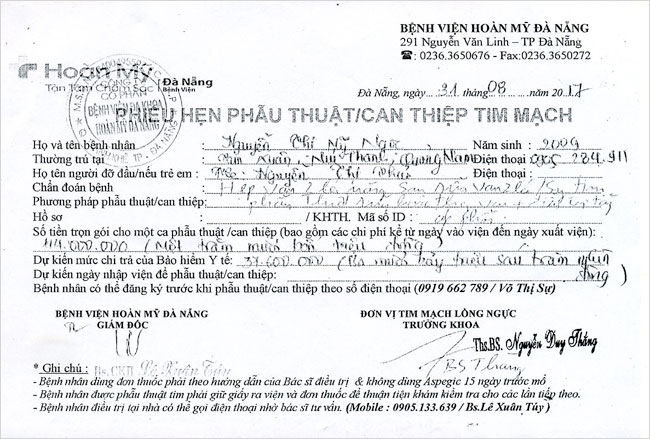 BỆNH VIỆN HOÀN MỸ ĐÀ NẴNG
291 Nguyễn Văn Linh – TP Đà Nẵng
☎: 0236.3650676 - Fax:0236.3650272
Hoàn Mỹ Đà Nẵng
Tận Tâm Chăm Sóc Bệnh Viện
CÔNG TY
CỔ PHẦN
BỆNH VIỆN ĐA KHOA
HOÀN MỸ ĐÀ NẴNG
Đà Nẵng, ngày 31 tháng 08 năm 2017
PHIẾU HẸN PHẪU THUẬT/CAN THIỆP TIM MẠCH
Họ và tên bệnh nhân : Nguyễn Thị Mỹ Ngọc Năm sinh : 2009
Thường trú tại : Tam Xuân, Núi Thành, Quảng Nam Điện thoại : 905 284 911
Họ tên người đỡ đầu/nếu trẻ em : Nguyễn Thị
Chẩn đoán bệnh : Hẹp van 2 lá nặng sau sửa van 2 lá / Suy tim
Phương pháp phẫu thuật/can thiệp: phẫu thuật
Hồ sơ : / KHTH. Mã số ID :
Số tiền trọn gói cho một ca phẫu thuật /can thiệp (bao gồm các chi phí kể từ ngày vào viện đến ngày xuất viện):
114.000.000 ( Một trăm mười bốn triệu đồng )
Dự kiến mức chi trả của Bảo hiểm Y tế: 37.600.000 ( Ba mươi bảy triệu sáu trăm nghìn
Dự kiến ngày nhập viện để phẫu thuật/can thiệp: đồng )
Bệnh nhân có thể đăng ký trước khi phẫu thuật/can thiệp theo số điện thoại (0919 662 789 / Võ Thị Sự)
BỆNH VIỆN HOÀN MỸ ĐÀ NẴNG ĐƠN VỊ TIM MẠCH LỒNG NGỰC
GIÁM ĐỐC TRƯỞNG KHOA
Ths.BS. Nguyễn Duy Thắng
BS Thắng
* Ghi chú : Bs.CKII Lê Xuân
- Bệnh nhân dùng đơn thuốc phải theo hướng dẫn của Bác sĩ điều trị & không dùng Aspegic 15 ngày trước mổ
- Bệnh nhân được phẫu thuật tim phải giữ giấy ra viện và đơn thuốc để thuận tiện khám kiểm tra cho các lần tiếp theo.
- Bệnh nhân điều trị tại nhà có thể gọi điện thoại nhờ bác sĩ tư vấn. (Mobile : 0905.133.639 / Bs.Lê Xuân Túy )